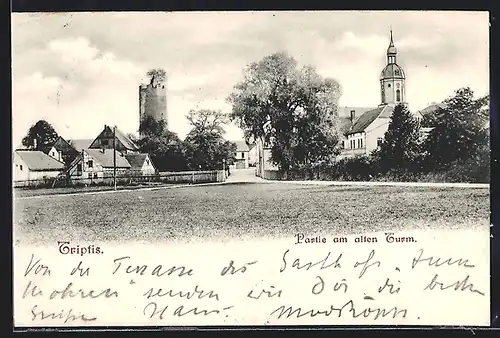 Triptis.
Partie am alten Turm.
Von der Terrasse des Gasthof zum
Mohren" senden wir Dir die besten
Grüße Hans